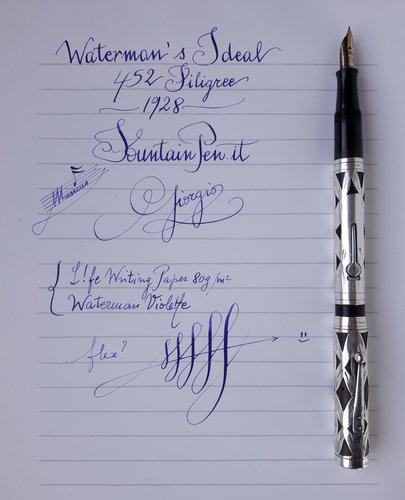 Waterman's Ideal
452 Filigree
1928
FountainPen.it
Musicus
Giorgio
L!fe Writing Paper 80g/m²
Waterman Violette
flex?